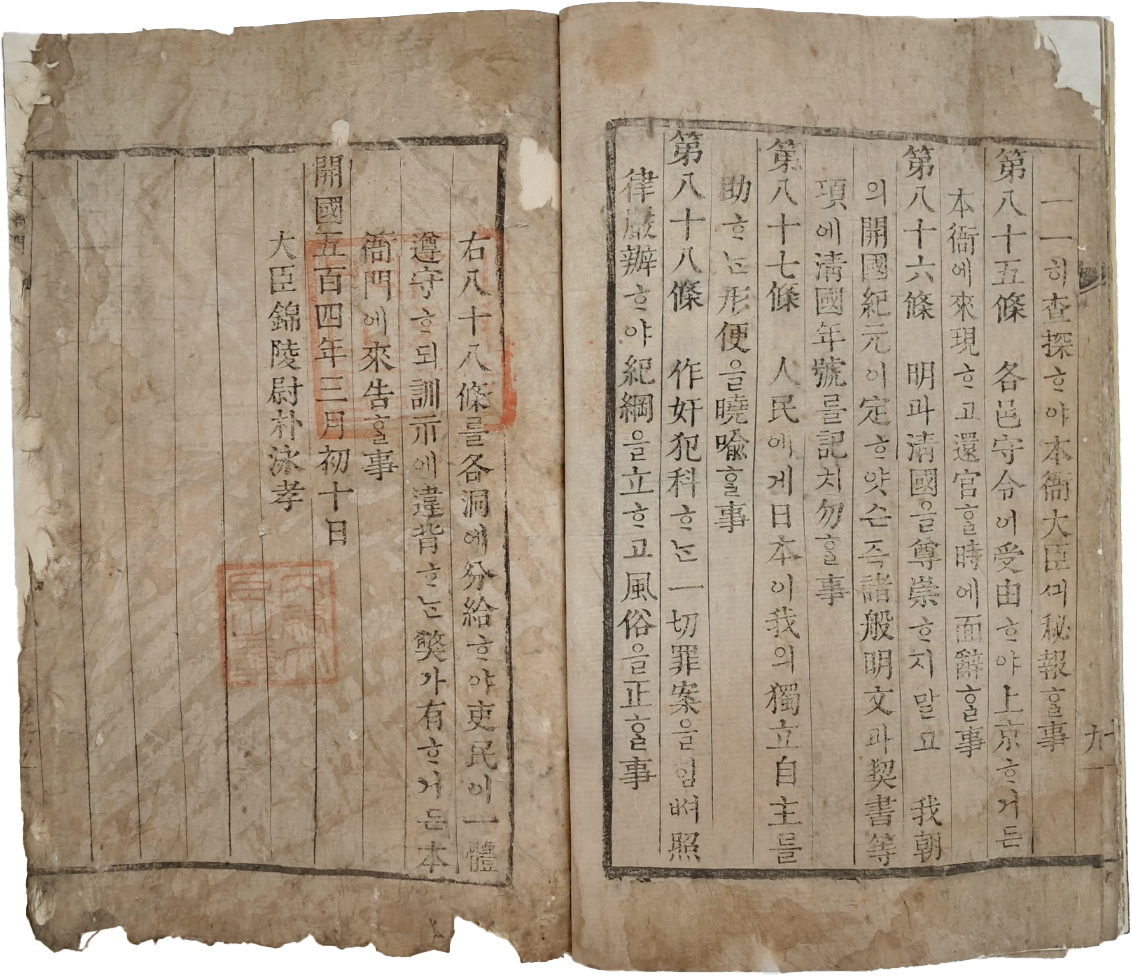 一一히査探ᄒᆞ야本衙大臣ᄭᅴ秘報ᄒᆞᆯ事
第八十五條 各邑守令이受由ᄒᆞ야上京ᄒᆞ거든
本衙에來現ᄒᆞ고還官ᄒᆞᆯ時에面辭ᄒᆞᆯ事
第八十六條 明과淸國을尊崇ᄒᆞ지말고 我朝
의開國紀元이定ᄒᆞ얏슨즉諸般明文과契書等
項에淸國年號를記치勿ᄒᆞᆯ事
第八十七條 人民에게日本이我의獨立自主를
助ᄒᆞᄂᆞᆫ形便을曉喩ᄒᆞᆯ事
第八十八條 作奸犯科ᄒᆞᄂᆞᆫ一切罪案을힘ᄡᅥ照
律嚴辦ᄒᆞ야紀綱을立ᄒᆞ고風俗을正ᄒᆞᆯ事
右八十八條를各洞에分給ᄒᆞ야吏民이一體
遵守ᄒᆞ되訓示에違背ᄒᆞᄂᆞᆫ獘가有ᄒᆞ거든本
衙門에來告ᄒᆞᆯ事
開國五百四年三月初十日
大臣錦陵尉朴泳孝